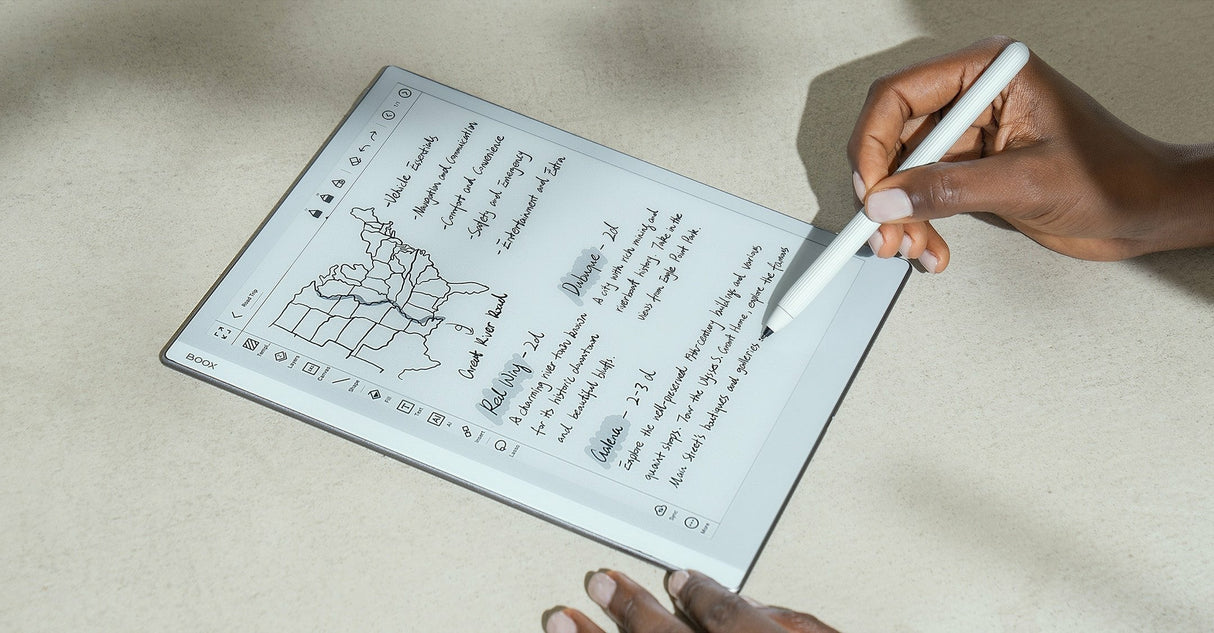 BOOX
Road Trip
1/1
Templ.
Layers
Canvas
Shape
Fill
Text
AI
AI
Insert
Lasso
Sync
More
-Vehicle Essentials
-Navigation and Communication
-Comfort and Convenience
-Safety and Emergency
-Entertainment and Extra
Great River Road
Red Wing - 2d
A charming river town known
for its historic downtown
and beautiful bluffs.
Dubuque - 2d
A city with rich mining and
riverboat history. Take in the
views from Eagle Point Park
Galena - 2-3 d
Explore the well-preserved 19th-century buildings and various
quaint shops. Tour the Ulysses S. Grant Home, explore the famous
Main Street's boutiques and galleries.